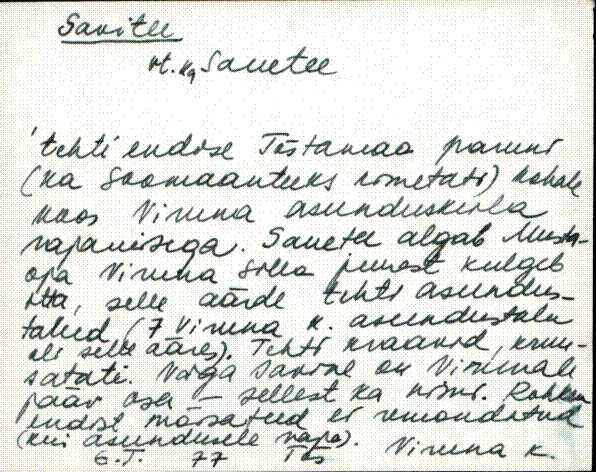 Savitee
vt. ka Sauetee
tehti endise Tõstamaa paruni
(ka Soomaanteeks nimetati) kohale
koos Viruna asundusküla
rajamisega. Sauetee algab Musta-
oja Viruna silla juurest kulgeb
itta, selle äärde tehti asundus-
talud (7 Viruna k. asundustalu
oli selle ääres). Tehti kraavid, kruu-
satati. Väga savine on Virunale
pääv osa – sellest ka nimi. Rohkem
endist mõisateed ei remonditud
(kui asundusele vaja).
6.I. 77 Tõs Viruna k.